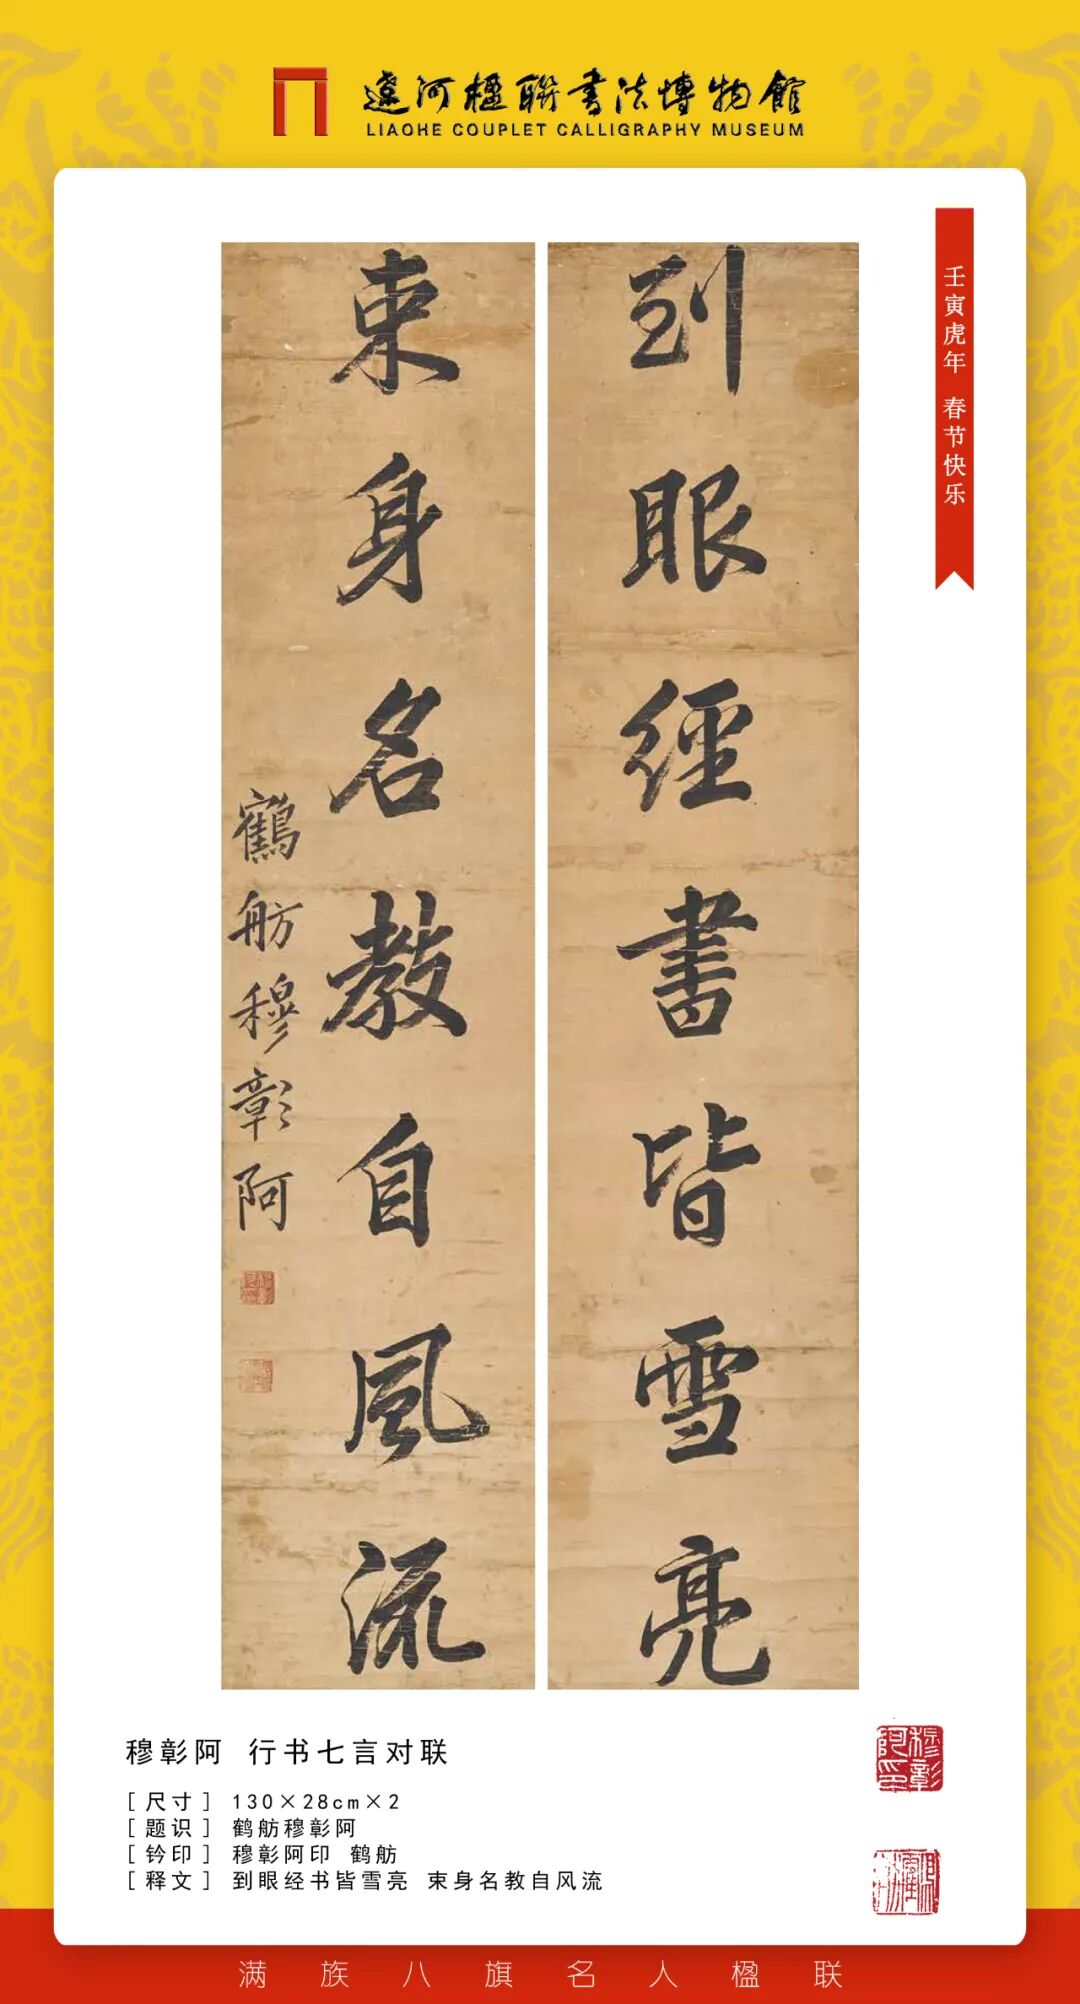 遼河楹聯書法博物館
LIAOHE COUPLET CALLIGRAPHY MUSEUM
壬寅虎年 春节快乐
到眼經書皆雪亮
束身名教自風流
鶴舫穆彰阿
穆彰阿 行书七言对联
[尺寸] 130×28cm×2
[题识] 鹤舫穆彰阿
[钤印] 穆彰阿印 鹤舫
[释文] 到眼经书皆雪亮 束身名教自风流
穆彰阿印
满族八旗名人楹联